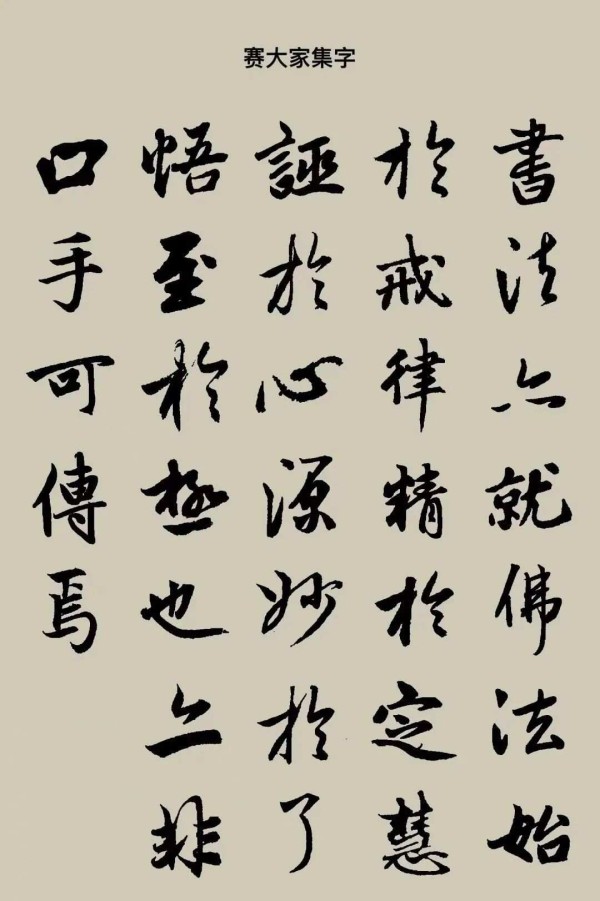 赛大家集字
書法亦就佛法始
於戒律精於定慧
誣於心源妙於了
悟至於極也亦非
口手可傳焉